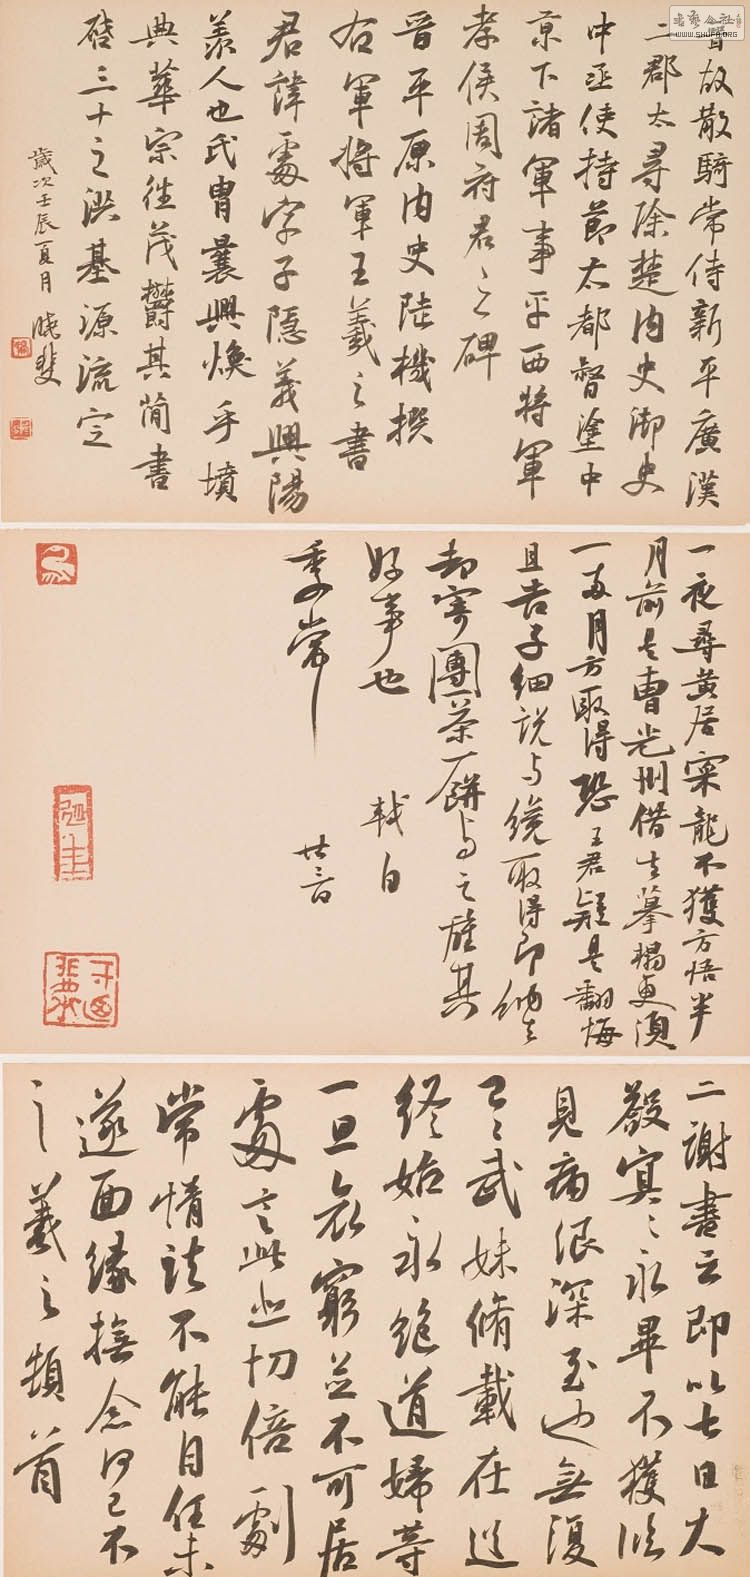 晋故散騎常侍新平廣漢
二郡太尋除楚内史御史
中丞使持節太都督塗中
京下諸軍事平西將軍
孝侯周府君之碑
晉平原内史陸機撰
右軍將軍王羲之書
君諱處字子隱義興陽
羨人也氏胄曩興煥乎墳
典華宗往茂欝其簡書
啓三十之洪基源流定
歲次壬辰夏月 曉斐
一夜尋黄居寀龍不獲方悟半
月前是曹光州借去摹搨更須
一兩月方取得恐王君疑是翻悔
且告子細説与纔取得即納去
却寄團茶一餅与之旌其
好事也 軾白
季常 廿三日
二謝書云即以七日大
殮冥冥永畢不獲臨
見痛恨深至也無復
已已武妹脩載在道
終始永絶道婦等
一旦哀窮並不可居
處言此悲切倍劇
常情諸不能自任未
遂面緣撫念何已不
具羲之頓首